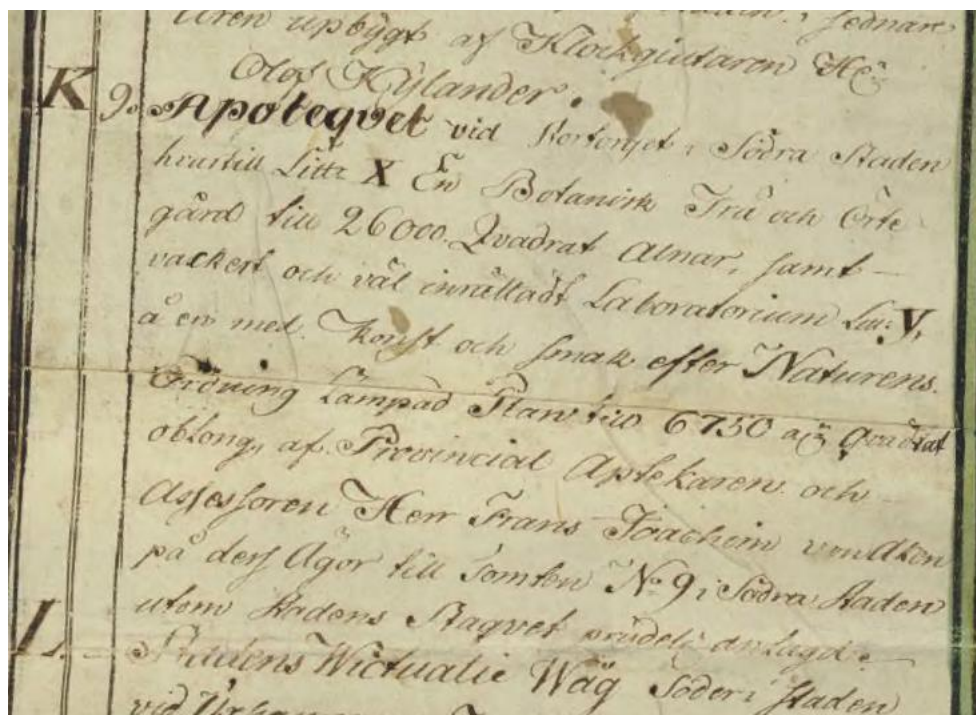 Åren upbygt af Klockgjutaren Hr
Olof Hylander.
K 9. Apoteqvet vid Stortorget i Södra Staden
hvartill Litt: X En Botanisk Trä och Örte
gård till 26000. Qvadrat Alnar, samt –
vackert och väl inrättadt Laboratorium Litt: Y,
å en med Konst och smak efter Naturens.
Ordning Lämpad Plan till 6750 aln Qvadrat
oblong, af Provincial Apotekaren och –
Assessoren Herr Frans Joachim von Aken
på dess Ägor till Tomten No 9 i Södra Staden
utom Stadens Staqvet prydelig anlagd. –
L. Stadens Wictualie Wåg Söder i Staden
vid